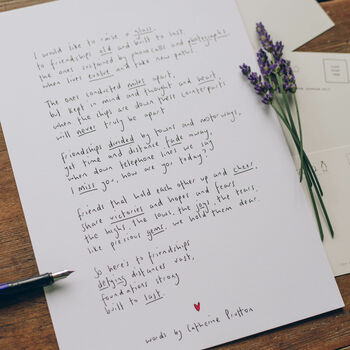 I would like to raise a glass
to friendships old and built to last
the ones sustained by phone calls and photographs
when lives evolve and take new paths.
The ones conducted miles apart,
but kept in mind and thought and heart,
when the chips are down these counterparts
will never truly be apart
Friendships divided by towns and motorways,
yet time and distance fade away,
when down telephone lines we say
I miss you, how are you today?
Friends that hold each other up and cheer,
share victories and hopes and fears
the highs, the lows, the joys, the tears,
like precious gems, we hold them dear.
So here's to friendships
defying distances vast,
foundations strong
built to last
words by Catherine Prutton